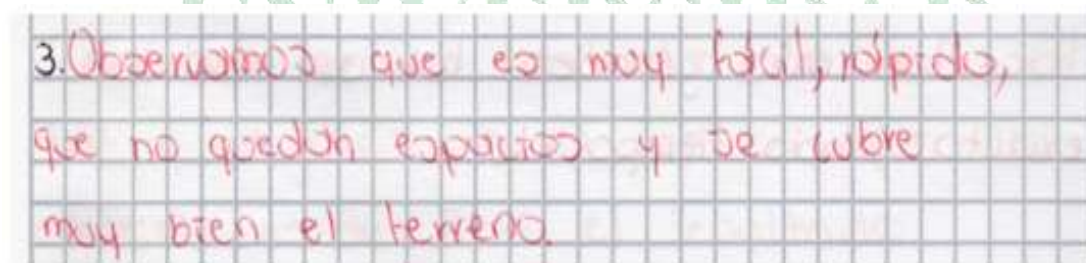 3. Observamos que es muy fácil, rápido,
que no quedan espacios y se cubre
muy bien el terreno.